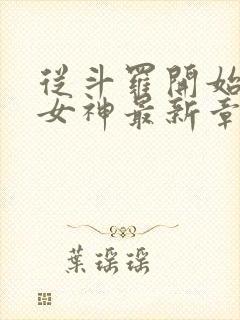 從斗羅開始
女神最新章
葉瑤瑤